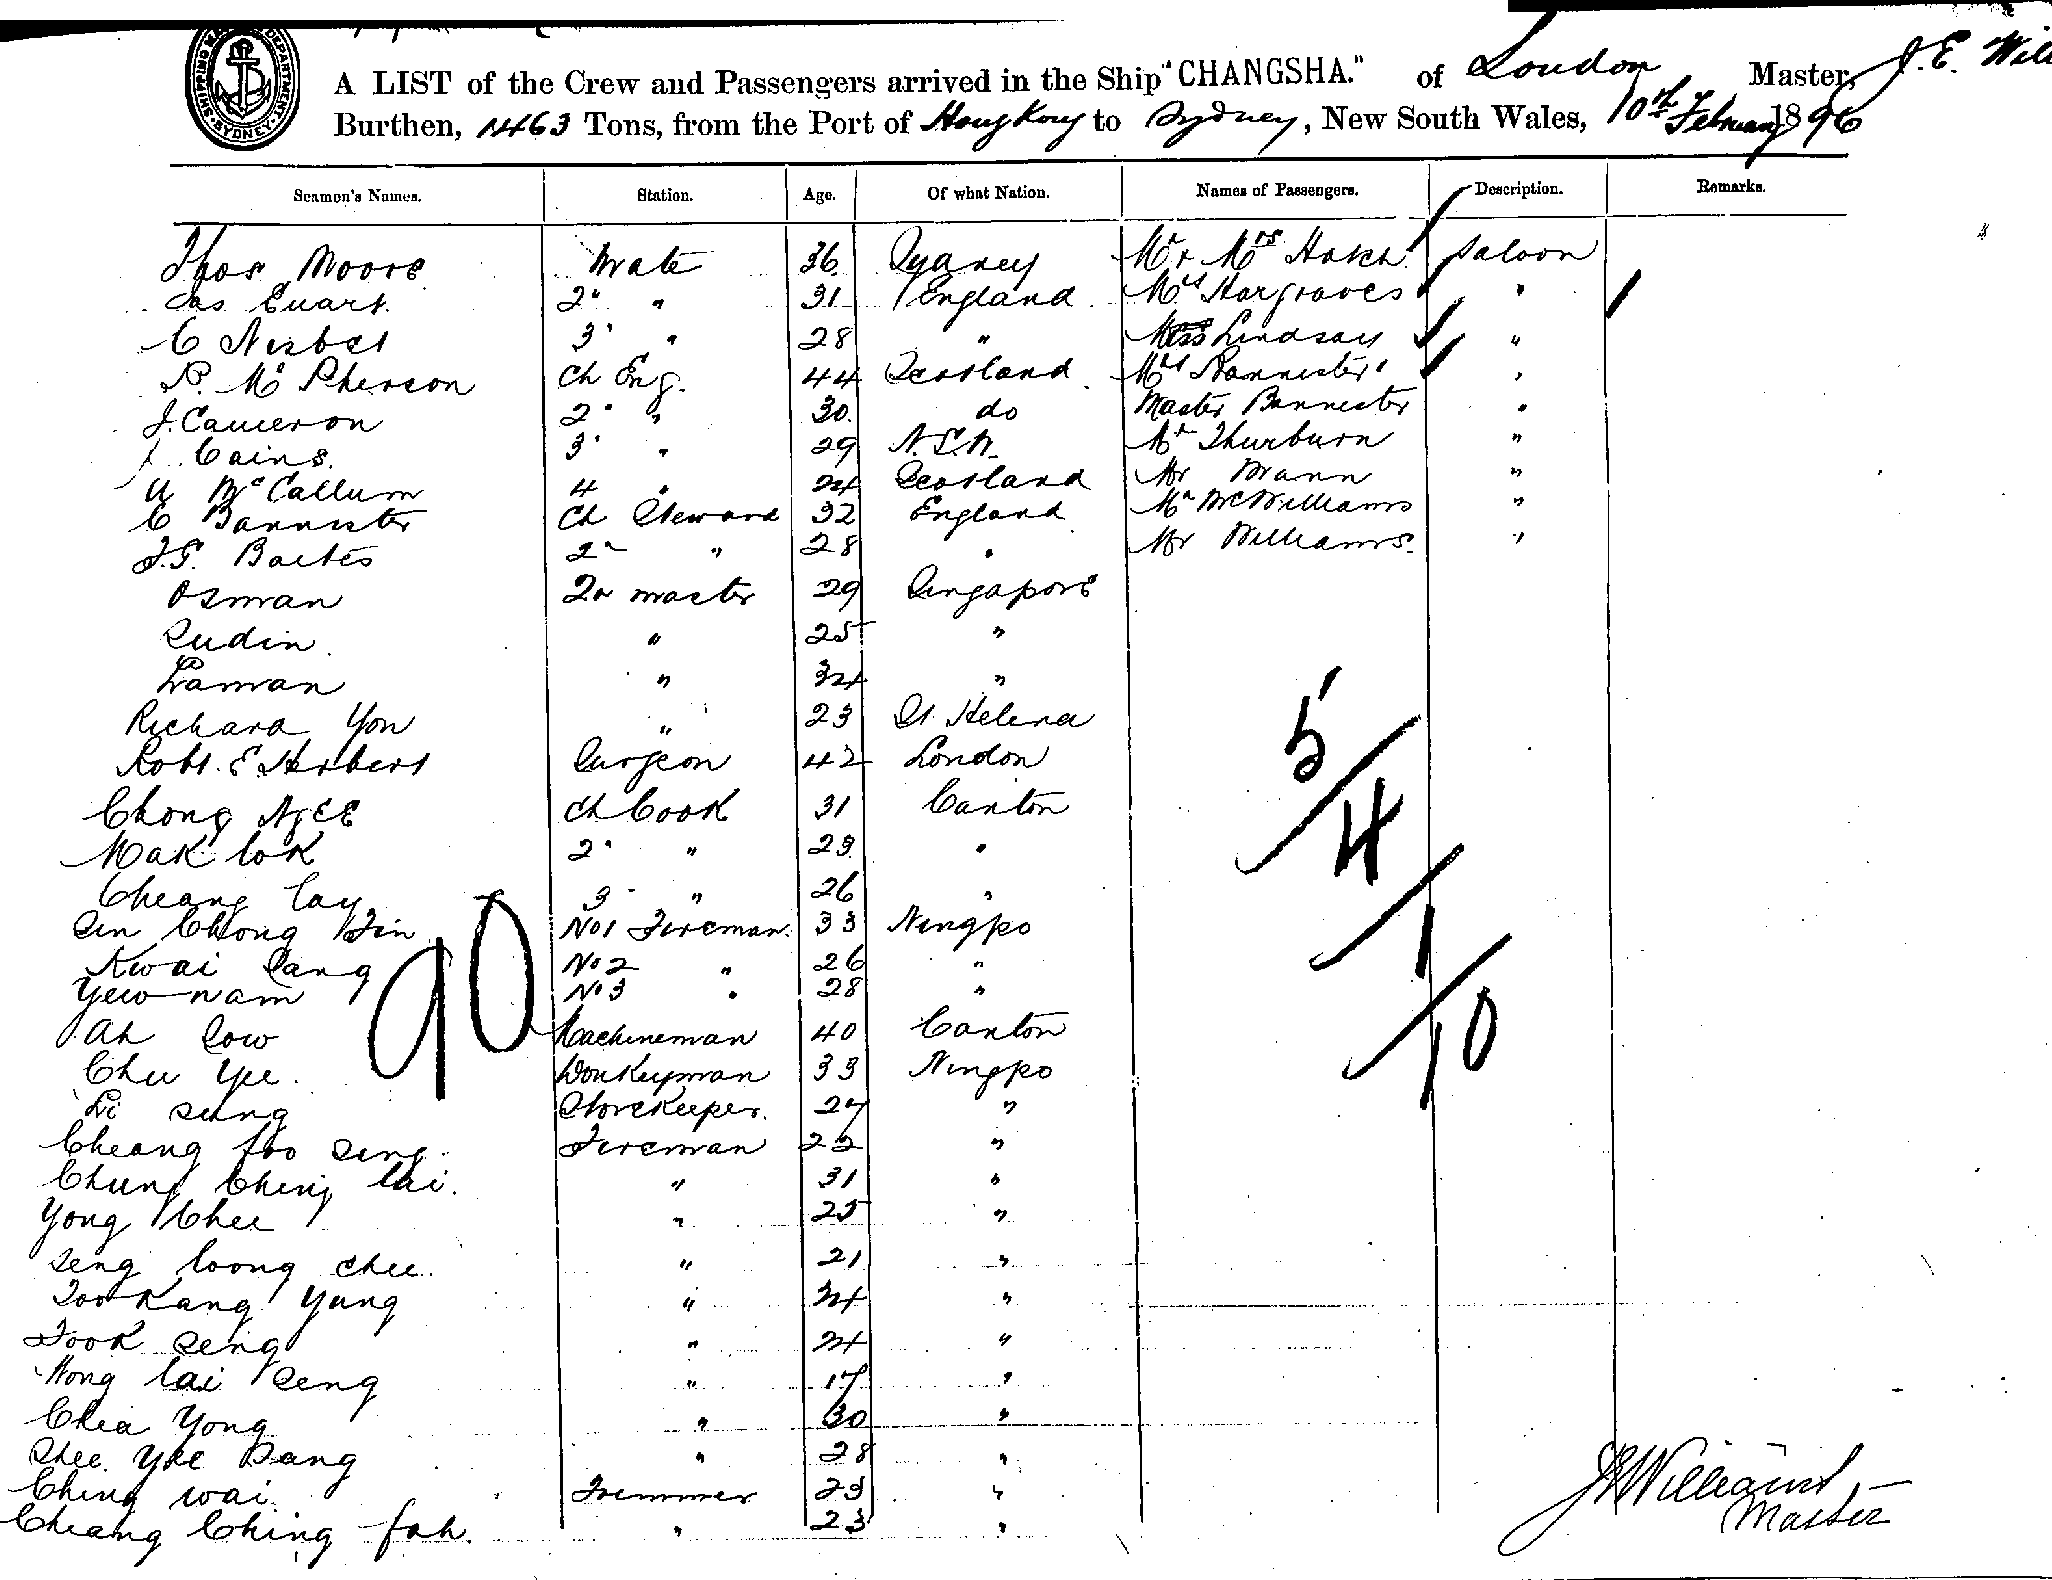 SHIPPING MASTER'S DEPARTMENT SYDNEY
A LIST of the Crew and Passengers arrived in the Ship "CHANGSHA." of London Master, J. E. Will
Burthen, 1463 Tons, from the Port of Hong Kong to Sydney, New South Wales, 10th February 1896
Seamen's Names. Station. Age. Of what Nation. Names of Passengers. Description. Remarks.
Thos Moore Mate 36 Sydney Mr & Mrs Hatch Saloon
Jas Euart 2" " 31 England Mrs Hargraves "
C Nisbet 3 " 28 " Miss Lindsay "
P. Mc Pherson Ch Eng. 44 Scotland Mrs Bannister "
J. Cameron 2 " 30 do Master Bannister "
J. Cains. 3 " 29 N.S.W. Mr Thurburn "
A McCallum 4 " 24 Scotland Mr Mann "
C Bannister Ch Steward 32 England Mr McWilliams "
J.G. Baites 2 " 28 " Mr Williams. "
Osman Qr master 29 Singapore
Sudin " 25 "
Laman " 34 "
Richard Yon " 23 St Helena
Robt. E Herbert Surgeon 42 London
Chong Ngee Ch Cook 31 Canton
Mak lok 2 " 23 "
Cheang Cay 3 " 26 "
Sin Chong Fin No1 Fireman. 33 Ningpo
Kwai Sang No2 " 26 "
Yew nam No3 " 28 "
Ah Sow Machineman 40 Canton
Chu Yee. Donkeyman 33 Ningpo
Li Sung Storekeeper. 27 "
Cheang foo Seng. Fireman 22 "
Chung Ching lai. " 31 "
Yong Chee " 25 "
Seng loong chee. " 21 "
Foo Kang Yung " 34 "
Fook Seng " 24 "
Hong lai Seng " 17 "
Chea Yong " 30 "
Shee Yee Sang " 28 "
Ching wai. Trimmer 23 "
Cheang Ching foh. " 23 "
90
5
4
1
10
J E Williams
Master